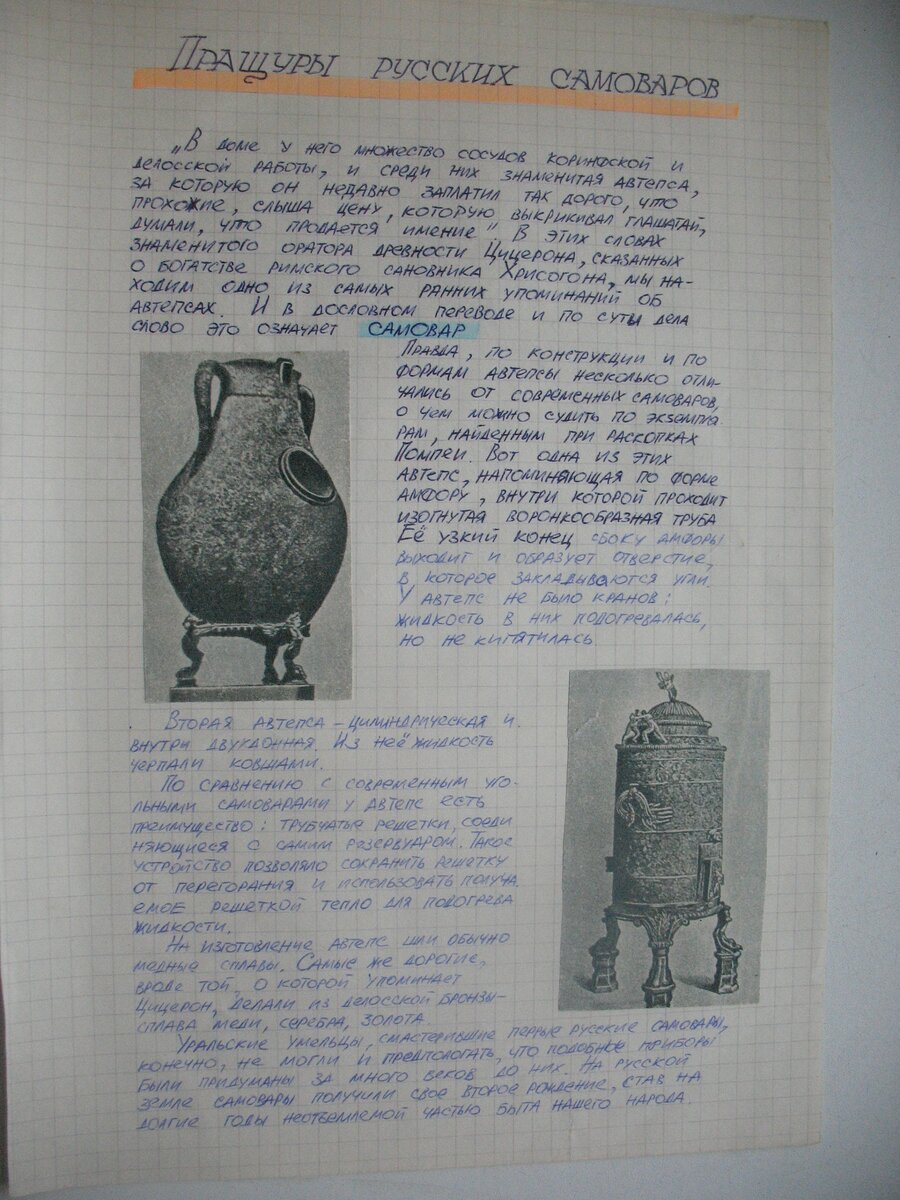 Пращуры русских самоваров
„В доме у него множество сосудов коринфской и
делосской работы, и среди них знаменитая автепса,
за которую он недавно заплатил так дорого, что
прохожие, слыша цену, которую выкрикивал глашатай,
думали, что продается имение" В этих словах
знаменитого оратора древности Цицерона, сказанных
о богатстве римского сановника Хрисогона, мы на-
ходим одно из самых ранних упоминаний об
автепсах. И в дословном переводе и по суты дела
слово это означает САМОВАР
Правда, по конструкции и по
формам автепсы несколько отли-
чались от современных самоваров,
о чем можно судить по экземпля
рам, найденным при раскопках
Помпеи. Вот одна из этих
автепс, напоминающая по форме
амфору, внутри которой проходит
изогнутая воронкообразная труба
Её узкий конец сбоку амфоры
выходит и образует отверстие,
в которое закладываются угли.
У автепс не было кранов:
жидкость в них подогревалась,
но не кипятилась
Вторая автепса – цилиндрическая и
внутри двухдонная. Из неё жидкость
черпали ковшами.
По сравнению с современным уго-
льными самоварами у автепс есть
преимущество: трубчатые решетки, соеди
няющиеся с самим резервуаром. Такое
устройство позволяло сохранить решетку
от перегорания и использовать получа
емое решеткой тепло для подогрева
жидкости.
На изготовление автепс шли обычно
медные сплавы. Самые же дорогие,
вроде той, о которой упоминает
Цицерон, делали из делосской бронзы-
сплава меди, серебра, золота
Уральские умельцы, смастерившие первые русские самовары,
конечно, не могли и предпологать, что подобные приборы
были придуманы за много веков до них. На русской
земле самовары получили свое второе рождение, став на
долгие годы неотъемлемой частью быта нашего народа.